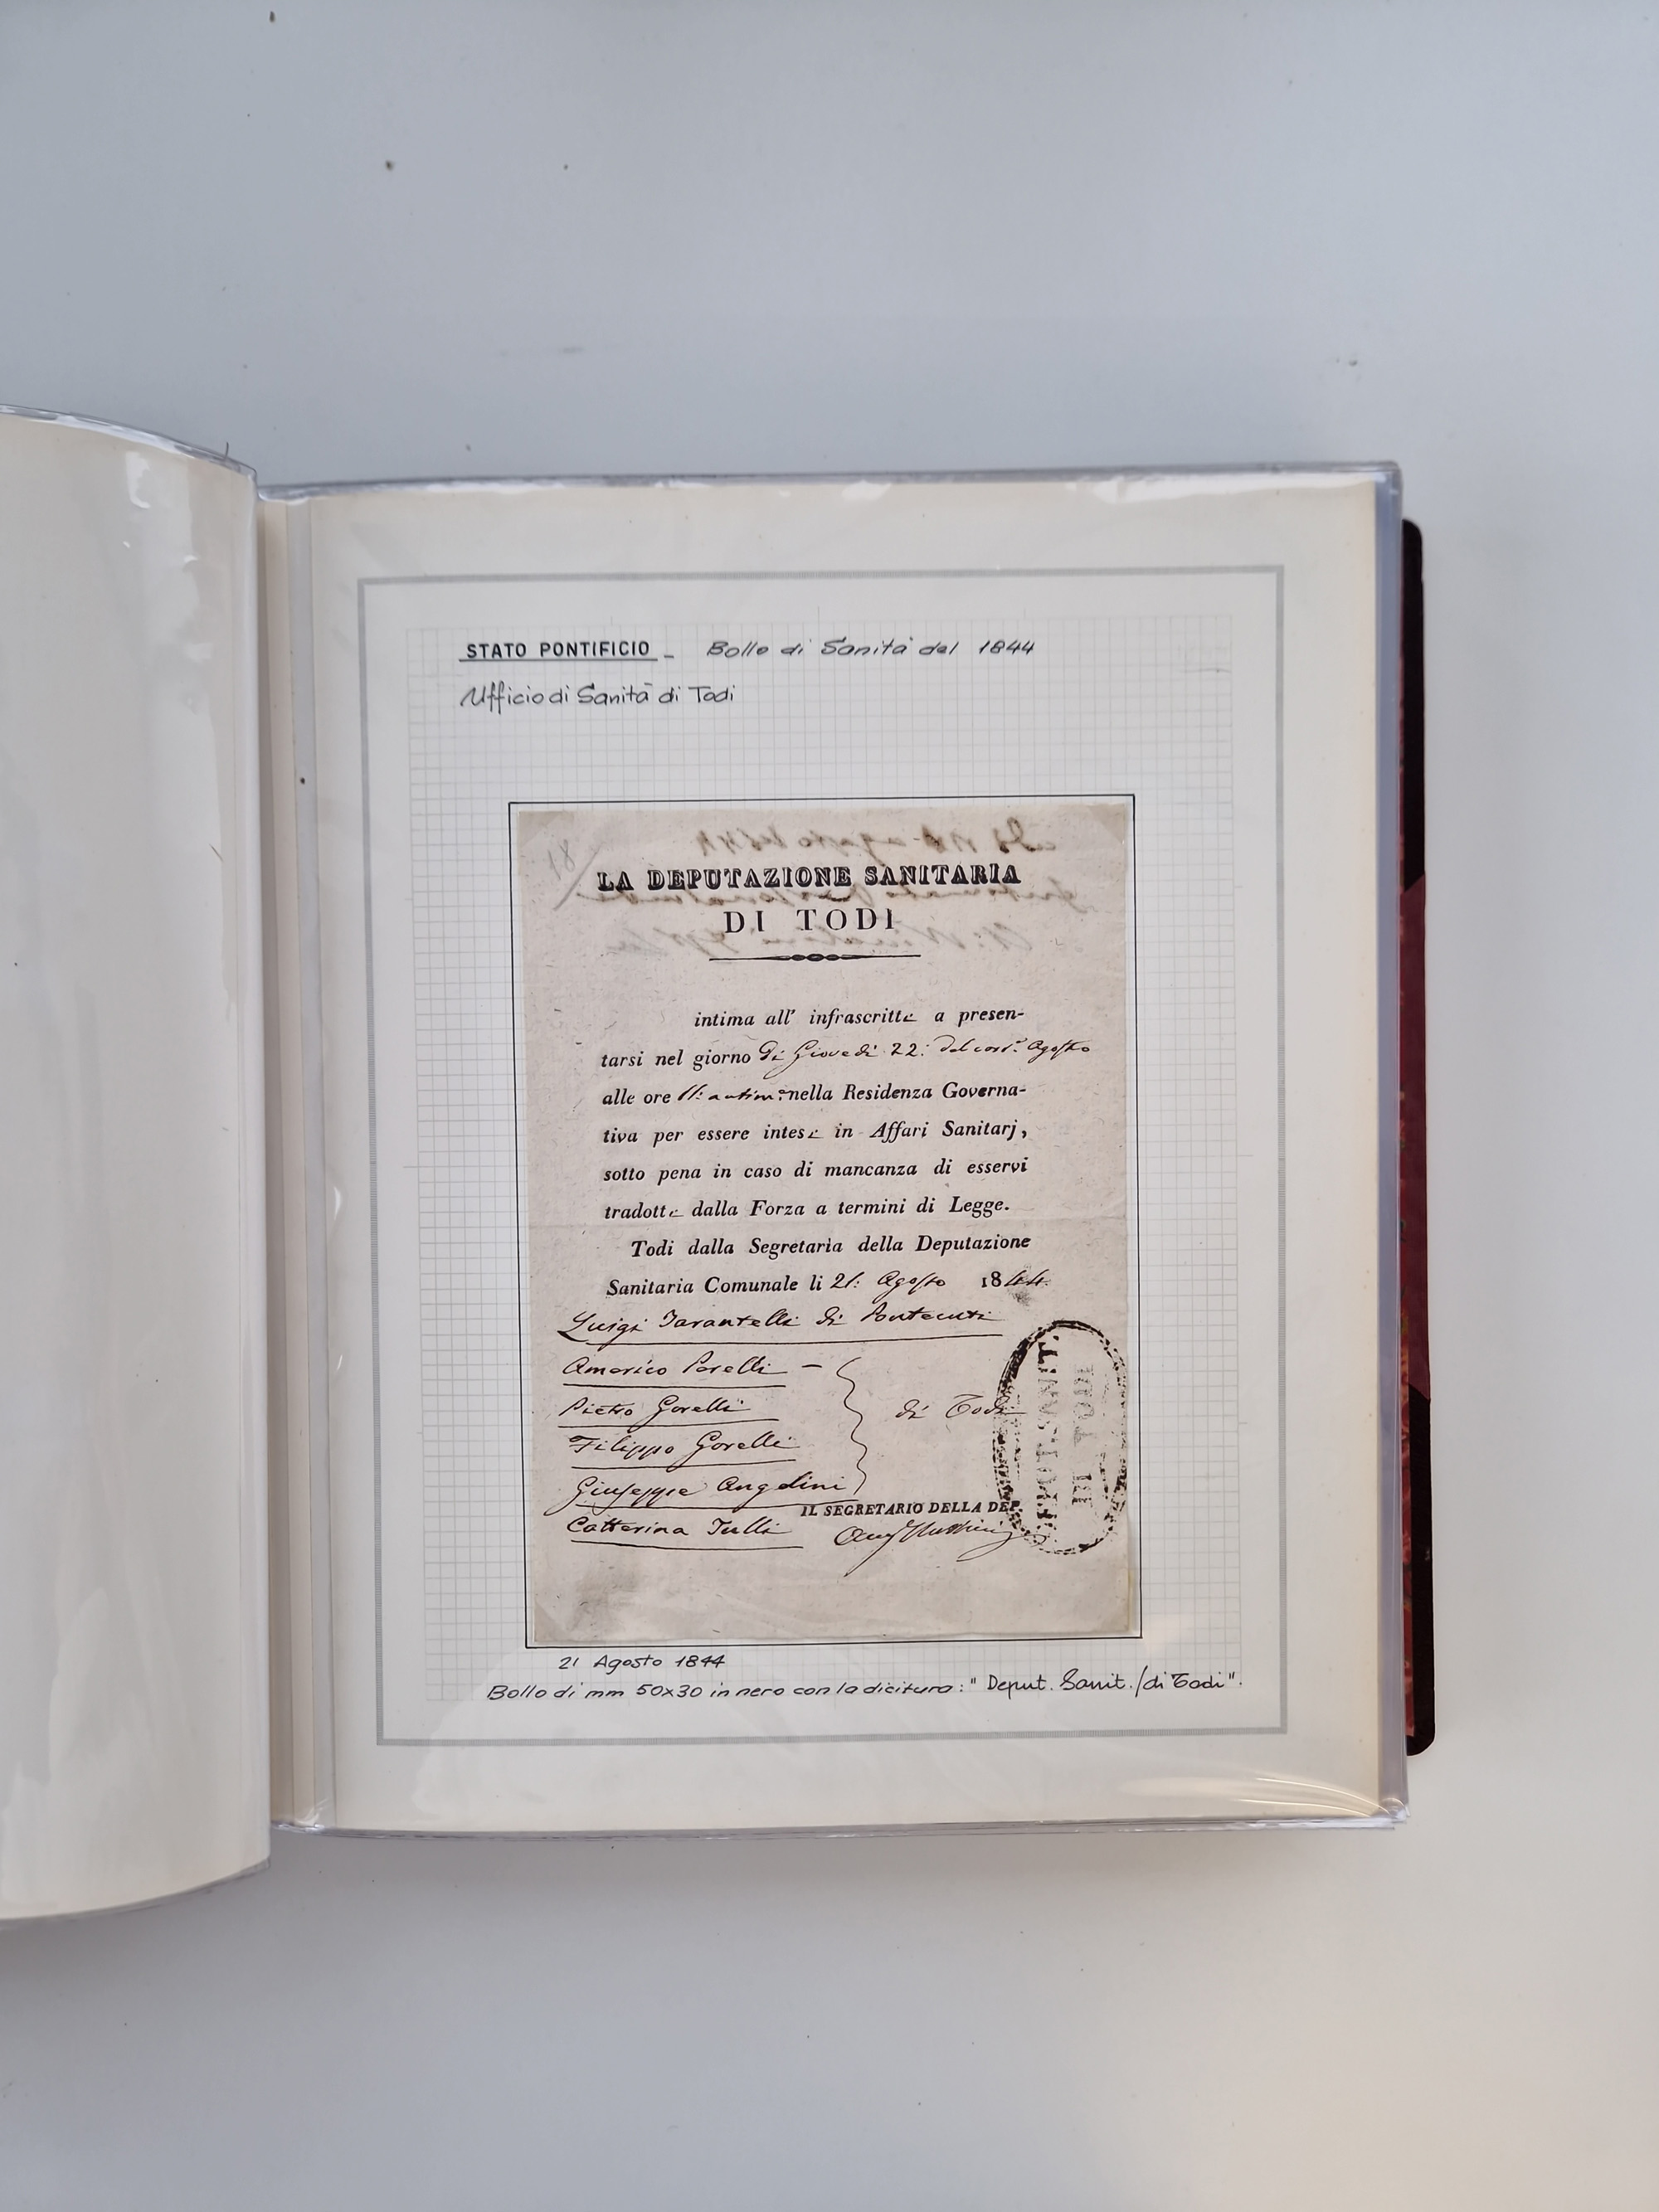 STATO PONTIFICIO - Bollo di Sanità del 1844
Ufficio di Sanità di Todi
81
LA DEPUTAZIONE SANITARIA
DI TODI
intima all' infrascritte a presen-
tarsi nel giorno di Giovedì 22: del corr.e Agosto
alle ore 11: antim:e nella Residenza Governa-
tiva per essere intese in Affari Sanitarj,
sotto pena in caso di mancanza di esservi
tradotte dalla Forza a termini di Legge.
Todi dalla Segretaria della Deputazione
Sanitaria Comunale li 21: Agosto 1844.
Luigi Tarantelli di Pontecuti
Americo Porelli -
Pietro Gorelli
di Todi
Filippo Gorelli
Giuseppe Angelini
IL SEGRETARIO DELLA DEP.
Catterina Tulli
DEPUT. SANIT.
DI TODI
21 Agosto 1844
Bollo di mm 50x30 in nero con la dicitura: "Deput. Sanit./di Todi".